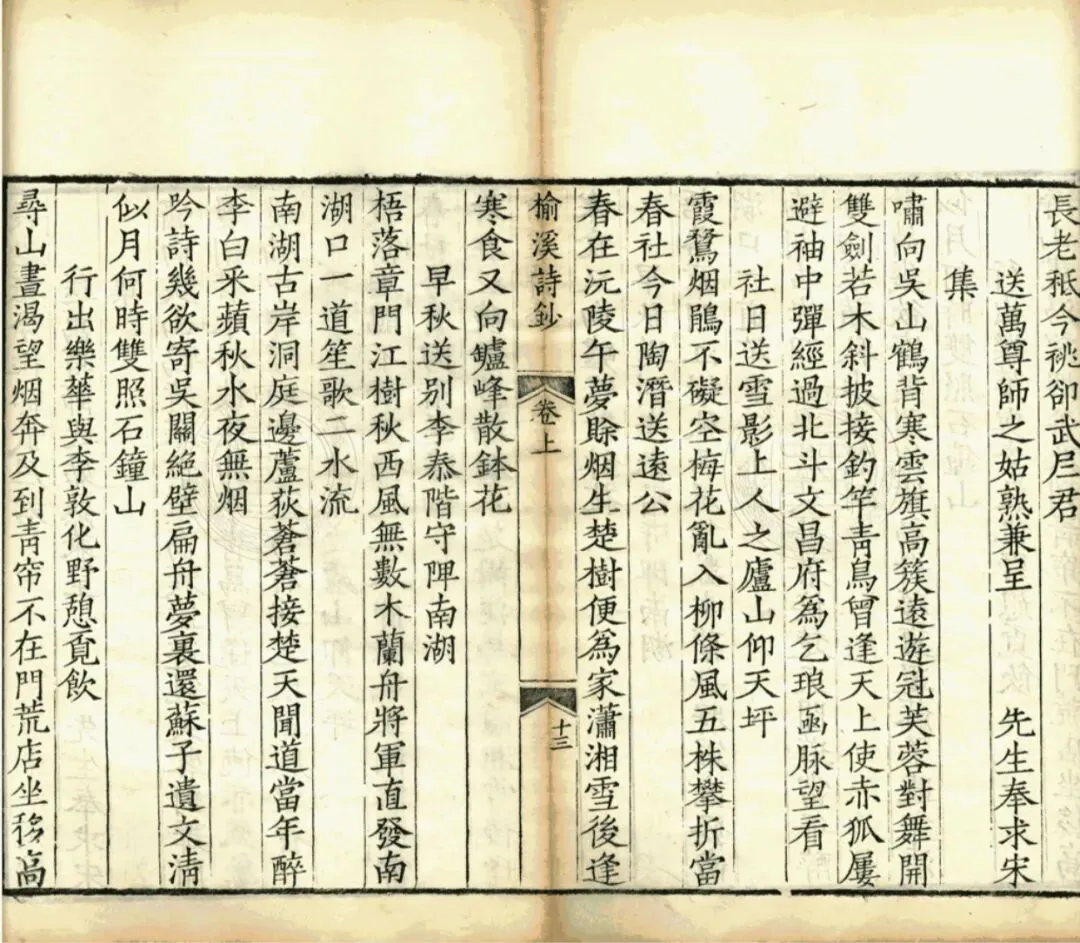 長老秪今祧卻武尼君
送萬尊師之姑熟兼呈　先生奉求宋
集
嘯向吳山鶴背寒雲旗高簇遠遊冠芙蓉對舞開
雙劍若木斜披接釣竿青鳥曾逢天上使赤狐屢
避袖中彈經過北斗文昌府為乞琅函脉望看
社日送雪影上人之廬山仰天坪
霞鶩烟鵑不礙空梅花亂入柳條風五株攀折當
春社今日陶潛送遠公
春在沅陵午夢賒烟生楚樹便為家瀟湘雪後逢
榆溪詩鈔　卷上　十三
寒食又向鑪峰散鉢花
早秋送別李泰階守陴南湖
梧落章門江樹秋西風無數木蘭舟將軍直發南
湖口一道笙歌二水流
南湖古岸洞庭邊蘆荻蒼蒼接楚天聞道當年醉
李白釆蘋秋水夜無烟
吟詩幾欲寄吳關絕壁扁舟夢裏還蘇子遺文清
似月何時雙照石鐘山
行出樂華與李敦化野憩覔飲
尋山晝渴望烟奔及到青帘不在門荒店坐移高